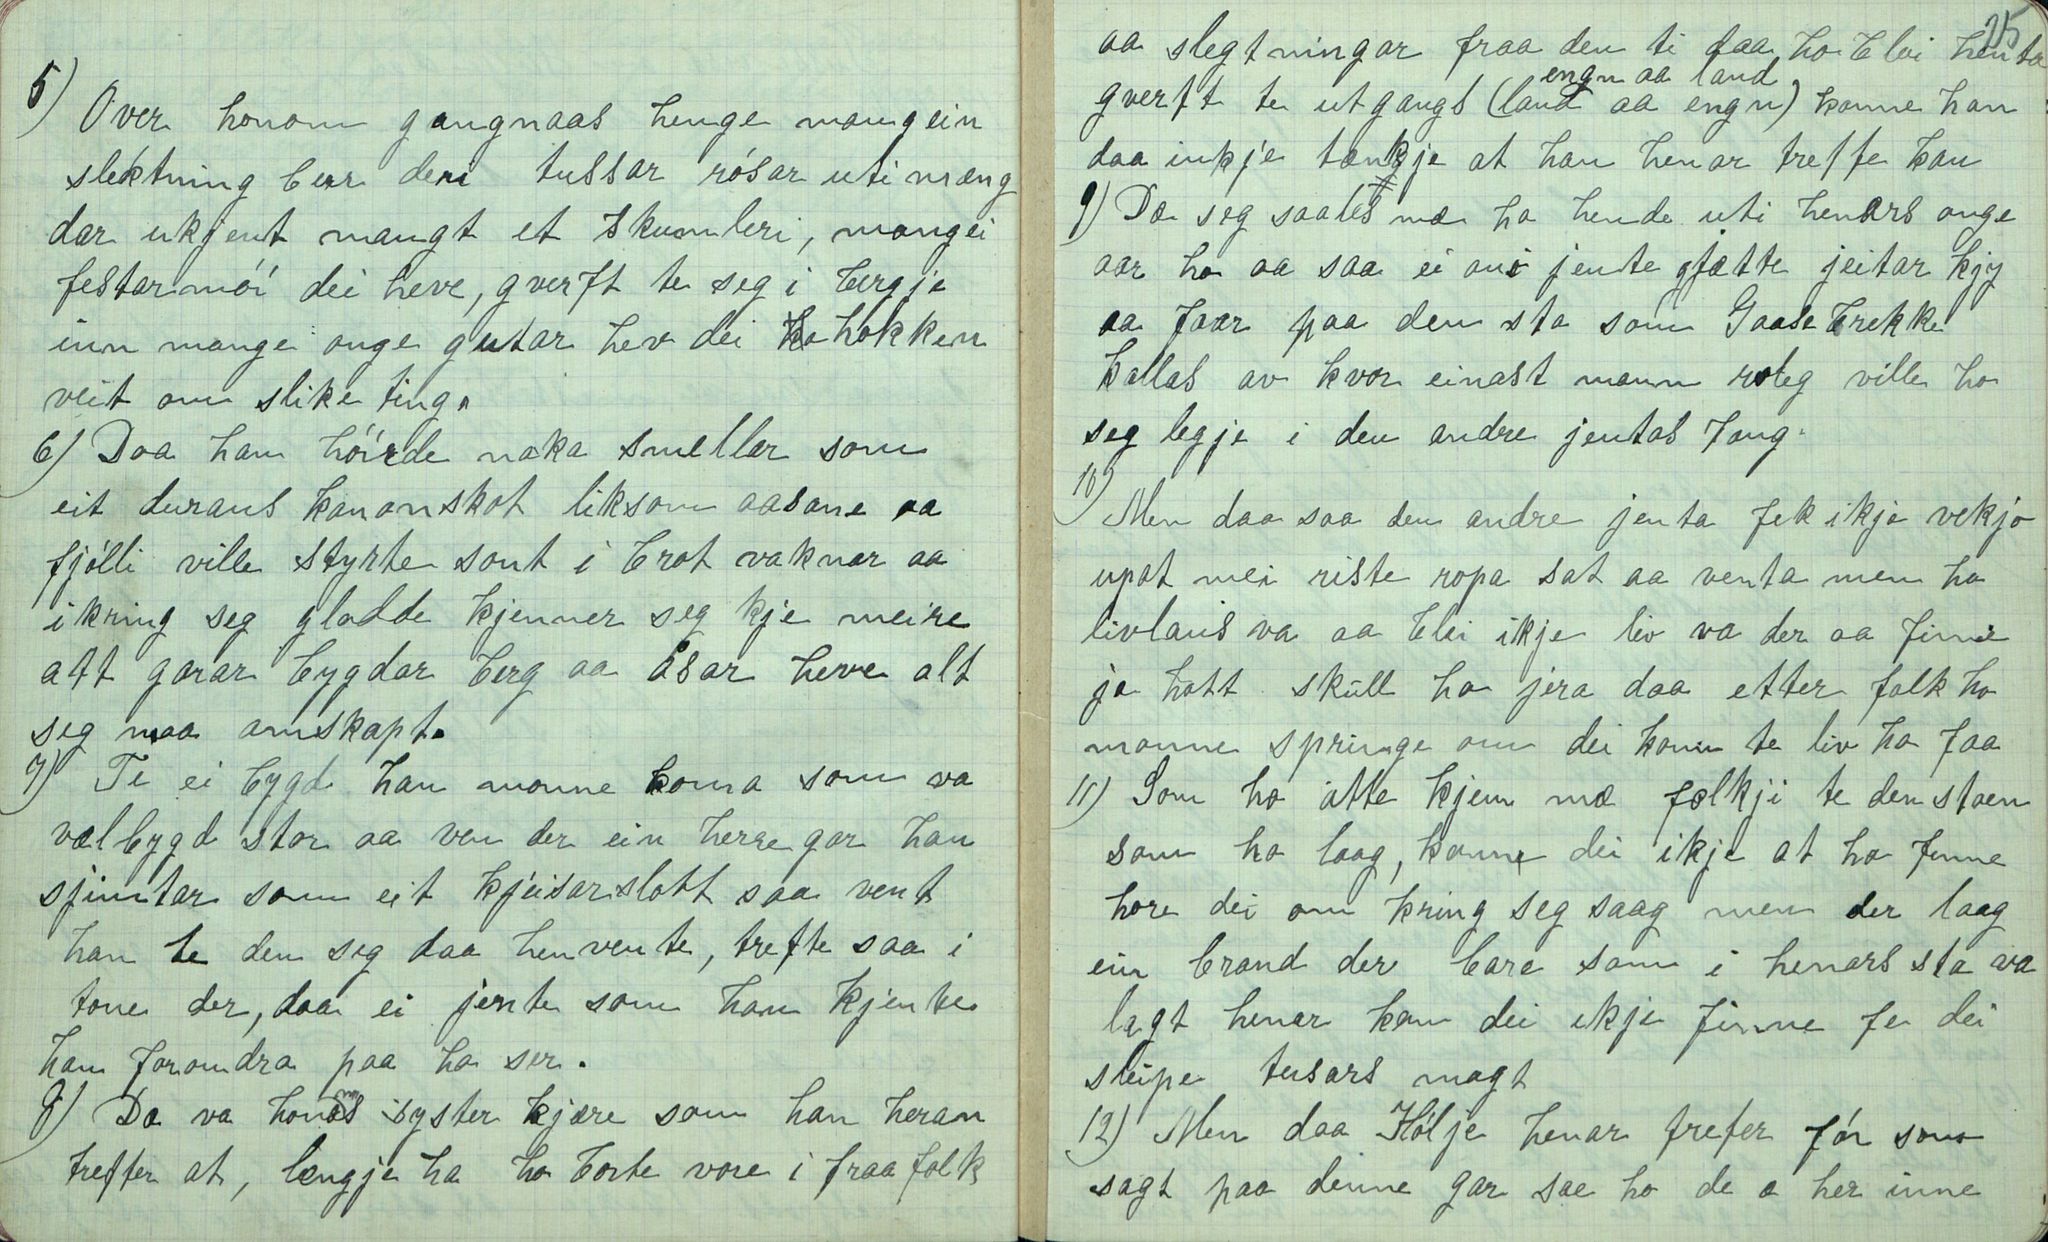 5) Over honom gongnaas henge mang ein
slektning berr deri tussar rósar uti mæng
dar ukjent mangt et skumleri, mangei
festarmói dei heve, gverft te seg i bergje
inn mange onge gutar hev dei ho hokken
veit om slike ting.
6) Daa han hóirde naka smellar som
eit durans kanonskot liksom aasane aa
fjólli ville styrte sont i brot vaknar aa
ikring seg glodde kjenner seg kje meire
att garar bygdar berg aa åsar heve alt
seg maa omskapt.
7) Te ei bygd han monne koma som va
vælbygd stor aa ven der ein herregar han
sjimtar som eit kjeisarslott saa vent
han te den seg daa henvente, trefte saa i
tone der, daa ei jente som han kjente
han forondra paa ho ser.
8) Dæ va honoms syster kjære som han heran
treffer at, længje ha ho borte vore i fraa folk
25
aa slegtningar fraa den ti daa ho blei henta
engn aa land
gverft te utgangs (land aa engn) konne han
daa inkje tænkje at han henar treffe kan
9) Dæ seg saales mæ ho hende uti henars onge
aar ho aa saa ei ani jente gjætte jeitar kjy
aa faar paa den sta som Gaasebrekke
kallas av kvor einast mann roleg ville ho
seg legje i den andre jentas fang.
10) Men daa saa den andre jenta fek ikje vekje
upat mei riste ropa sat aa venta men ho
livlaus va aa blei ikje liv va der aa finne
ja hott skull ho jera daa etter folk ho
monne springe om dei konn te liv ho faa
11) Som ho atte kjem mæ folkji te den staen
som ho laag, konne dei ikje at ho finne
hore dei om kring seg saag men der laag
ein brand der bare som i henars sta va
lagt henar kan dei ikje finne fe dei
sleipe tusars magt
12) Men daa Hólje henar trefer fór som
sagt paa denne gar sae ho de æ her inne